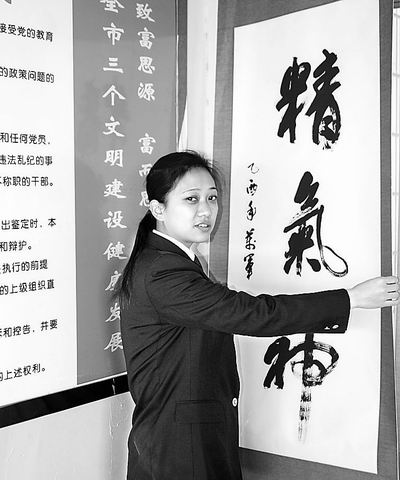 接受党的教育
的政策问题的
和任何党员、
违法乱纪的事
称职的干部。
出鉴定时，本
和辩护。
执行的前提
的上级组织直
和控告，并要
的上述权利。
致富思源 富而思
全市三个文明建设健康发展
精氣神
乙酉年